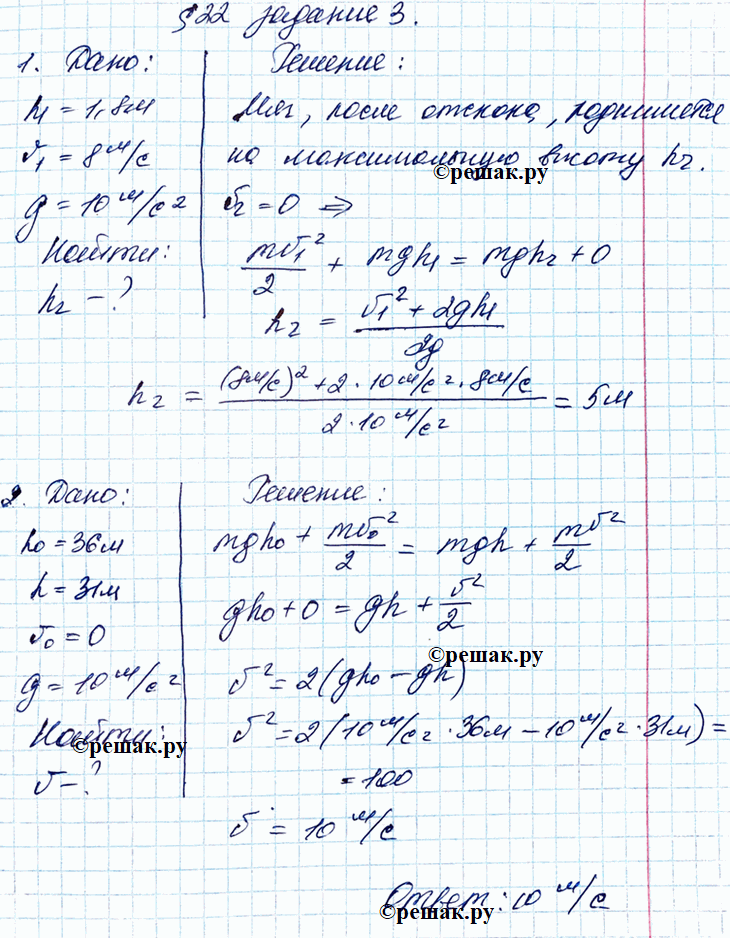 §22 задание 3.
1. Дано:
h₁ = 1,8м
v₁ = 8 м/с
g = 10 м/с²
Найти:
h₂ – ?
Решение:
Мяч, после отскока, поднимется
на максимальную высоту h₂.
©решак.ру
v₂ = 0 ⇒
mv₁²/2 + mgh₁ = mgh₂ + 0
h₂ = (v₁² + 2gh₁)/2g
h₂ = ((8м/с)² + 2 · 10 м/с² · 8м/с)/(2 · 10 м/с²) = 5м
2. Дано:
h₀ = 36м
h = 31м
v₀ = 0
g = 10 м/с²
Найти:
©решак.ру
v – ?
Решение:
mgh₀ + mv₀²/2 = mgh + mv²/2
gh₀ + 0 = gh + v²/2
©решак.ру
v² = 2(gh₀ – gh)
v² = 2(10 м/с² · 36м – 10 м/с² · 31м) =
= 100
v = 10 м/с
Ответ: 10 м/с
©решак.ру